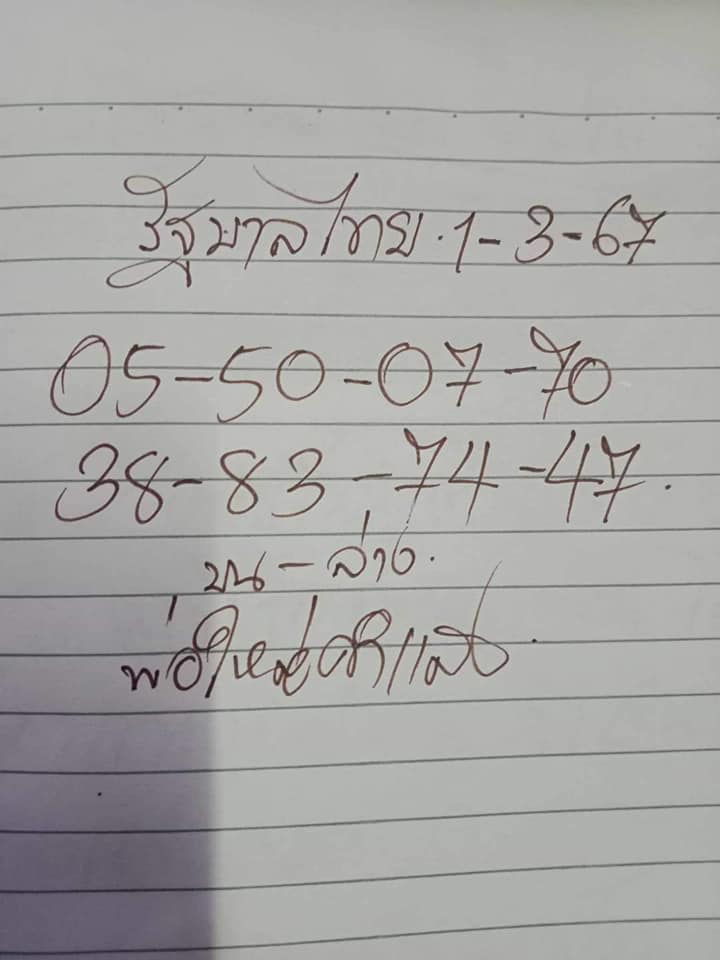 รัฐบาลไทย.1-3-67
05-50-07-70
38-83-74-47.
บน-ล่าง.
พ่อใหญ่